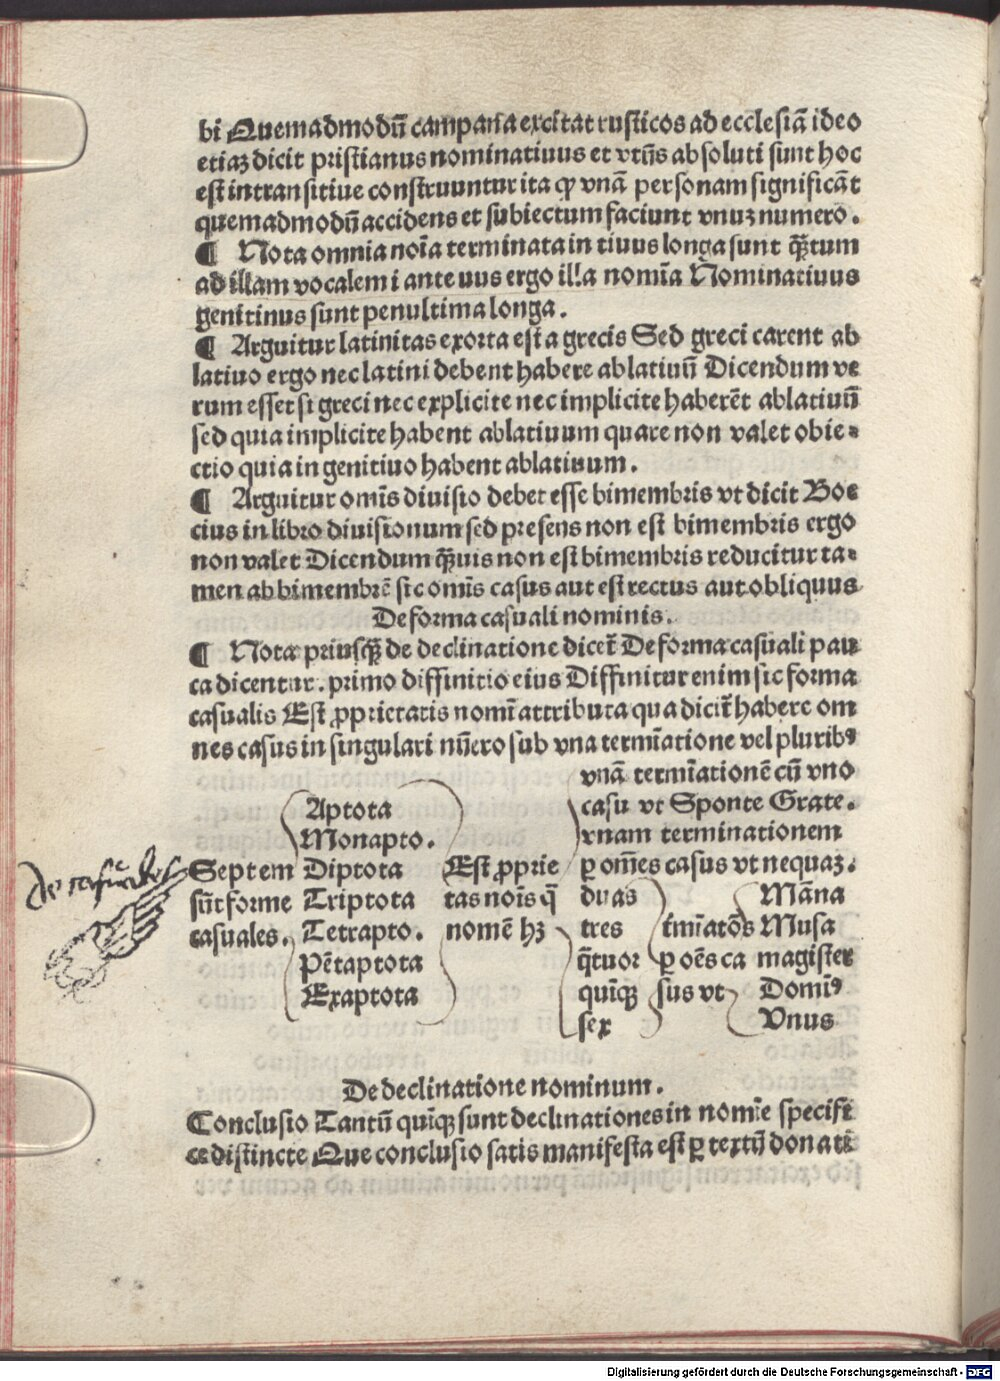 bi Quemadmodū campana excitat rusticos ad ecclesiā ideo
etiaꝫ dicit pristianus nominatiuus et vtūs absoluti sunt hoc
est intransitiue construuntur ita ꝙ vnā personam significāt
quemadmodū accidens et subiectum faciunt vnuꝫ numero.
¶ Nota omnia noīa terminata in tiuus longa sunt q̄ꝫtum
ad illam vocalem i ante uus ergo illa nomīa Nominatiuus
genitinus sunt penultima longa.
¶ Arguitur latinitas exorta est a grecis Sed greci carent ab
latiuo ergo nec latini debent habere ablatiuū Dicendum ve
rum esset si greci nec explicite nec implicite haberēt ablatiuū
sed quia implicite habent ablatiuum quare non valet obie⸗
ctio quia in genitiuo habent ablatiuum.
¶ Arguitur omīs diuisio debet esse bimembris vt dicit Boe
cius in libro diuisionum sed presens non est bimembris ergo
non valet Dicendum q̄ꝫuis non est bimembris reducitur ta⸗
men ab bimembrē sic omīs casus aut est rectus aut obliquus
De forma casuali nominis.
¶ Nota priusq̄ꝫ de declinatione dicet᷑ De forma casuali pau
ca dicentur. primo diffinitio eius Diffinitur enim sic forma
casualis Est ꝓprietatis nomī attributa qua dicit᷑ habere om
nes casus in singulari nūero sub vna termīatione vel pluribꝰ
vnā termīationē cū vno
Aptota casu vt Sponte Grate.
Monapto. vnam terminationem
Septem Diptota Est ꝓprie ꝑ om̄es casus vt nequaꝫ.
sūt forme Triptota tas noīs q̄ duas Māna
casuales. Tetrapto. nomē hꝫ tres tmīatōs Musa
Pētaptota q̄tuor ꝑ oēs ca magister
Exaptota quīqꝫ sus vt Domīꝰ
sex Vnus
De declinatione nominum.
Conclusio Tantū quīqꝫ sunt declinationes in nomīe specifi
ce distincte Que conclusio satis manifesta est ꝑ textū donati
Digitalisierung gefördert durch die Deutsche Forschungsgemeinschaft - DFG